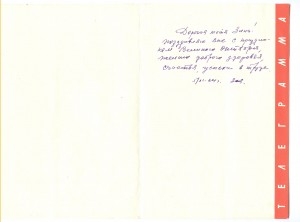 Дорогая тётя Аня!
поздравляю Вас с праздни-
ком Великого Октября,
желаю доброго здоровья,
счастья, успехов в труде
ТЕЛЕГРАММА